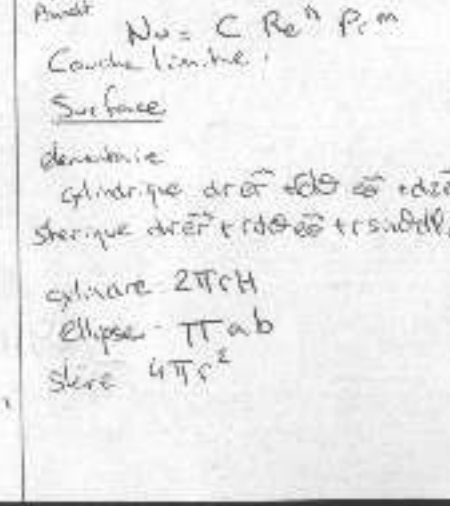 Nu = C Re^n Pr^m
Couche limite :
Surface
cylindrique dr er + rdθ eθ + dz e
sferique dr er + rdθ eθ + r sinθ dφ
cylindre 2πrH
ellipse - πab
sfere 4πr²